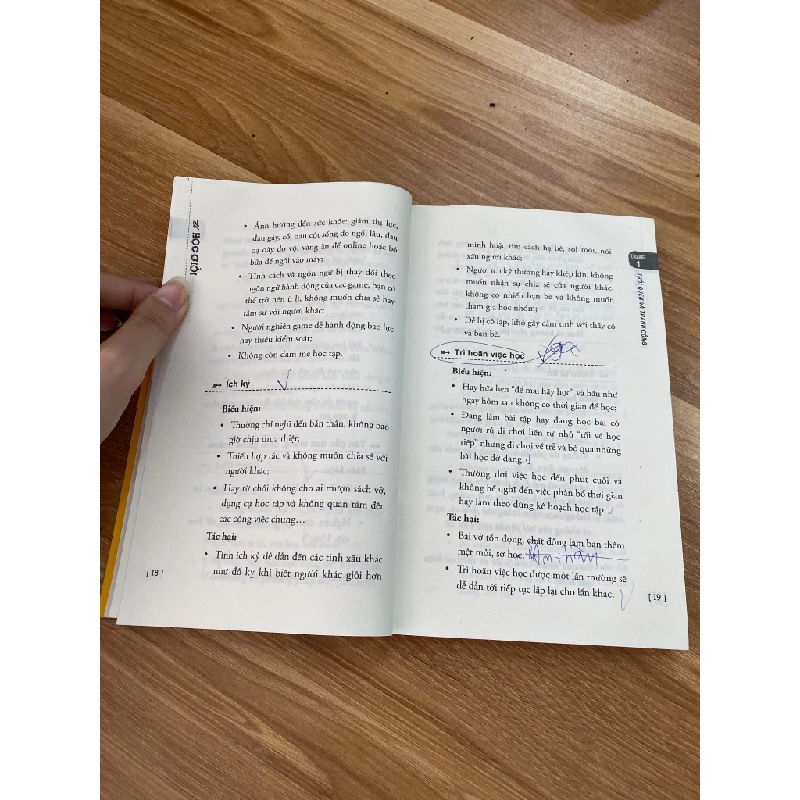 Học giỏi
• Ảnh hưởng đến sức khỏe: giảm thị lực,
đau gáy, cổ, cơn cột sống do ngồi lâu, đau
dạ dày do vội vàng ăn để online hoặc bỏ
bữa để ngồi vào máy;
• Tính cách và ngôn ngữ bị thay đổi theo
ngôn ngữ hành động của các game, bạn có
thể trở nên ù lì, không muốn chia sẻ hay
tâm sự với người khác;
• Người nghiện game dễ hành động bạo lực
hay thiếu kiểm soát;
• Không còn đam mê học tập.
Ích kỷ
Biểu hiện:
• Thường chỉ nghĩ đến bản thân, không bao
giờ chịu thua thiệt;
• Thiếu hợp tác và không muốn chia sẻ với
người khác;
• Hay từ chối không cho ai mượn sách vở,
dụng cụ học tập và không quan tâm đến
các công việc chung…
Tác hại:
• Tính ích kỷ dễ dẫn đến các tính xấu khác
như đố kỵ khi biết người khác giỏi hơn
[18]
mình hoặc tìm cách hạ bệ, soi mói, nói
xấu người khác;
• Người ích kỷ thường hay khép kín, không
muốn nhận sự chia sẻ của người khác,
không có nhiều bạn bè và không muốn
tham gia học nhóm;
• Dễ bị cô lập, khó gây cảm tình với thầy cô
và bạn bè.
Trì hoãn việc học
Biểu hiện:
• Hay hứa hẹn "để mai hãy học" và hầu như
ngày hôm sau không có thời gian để học;
• Đang làm bài tập hay đang học bài, có
người rủ đi chơi liền tự nhủ "tối về học
tiếp" nhưng đi chơi về trễ và bỏ qua những
bài học dở dang;
• Thường đợi việc học đến phút cuối và
không hề nghĩ đến việc phân bổ thời gian
hay làm theo đúng kế hoạch học tập.
Tác hại:
• Bài vở tồn đọng, chất đống làm bạn thêm
mệt mỏi, sợ học.
• Trì hoãn việc học được một lần thường sẽ
dễ dẫn tới tiếp tục lặp lại cho lần khác.
[19]
Chương
1